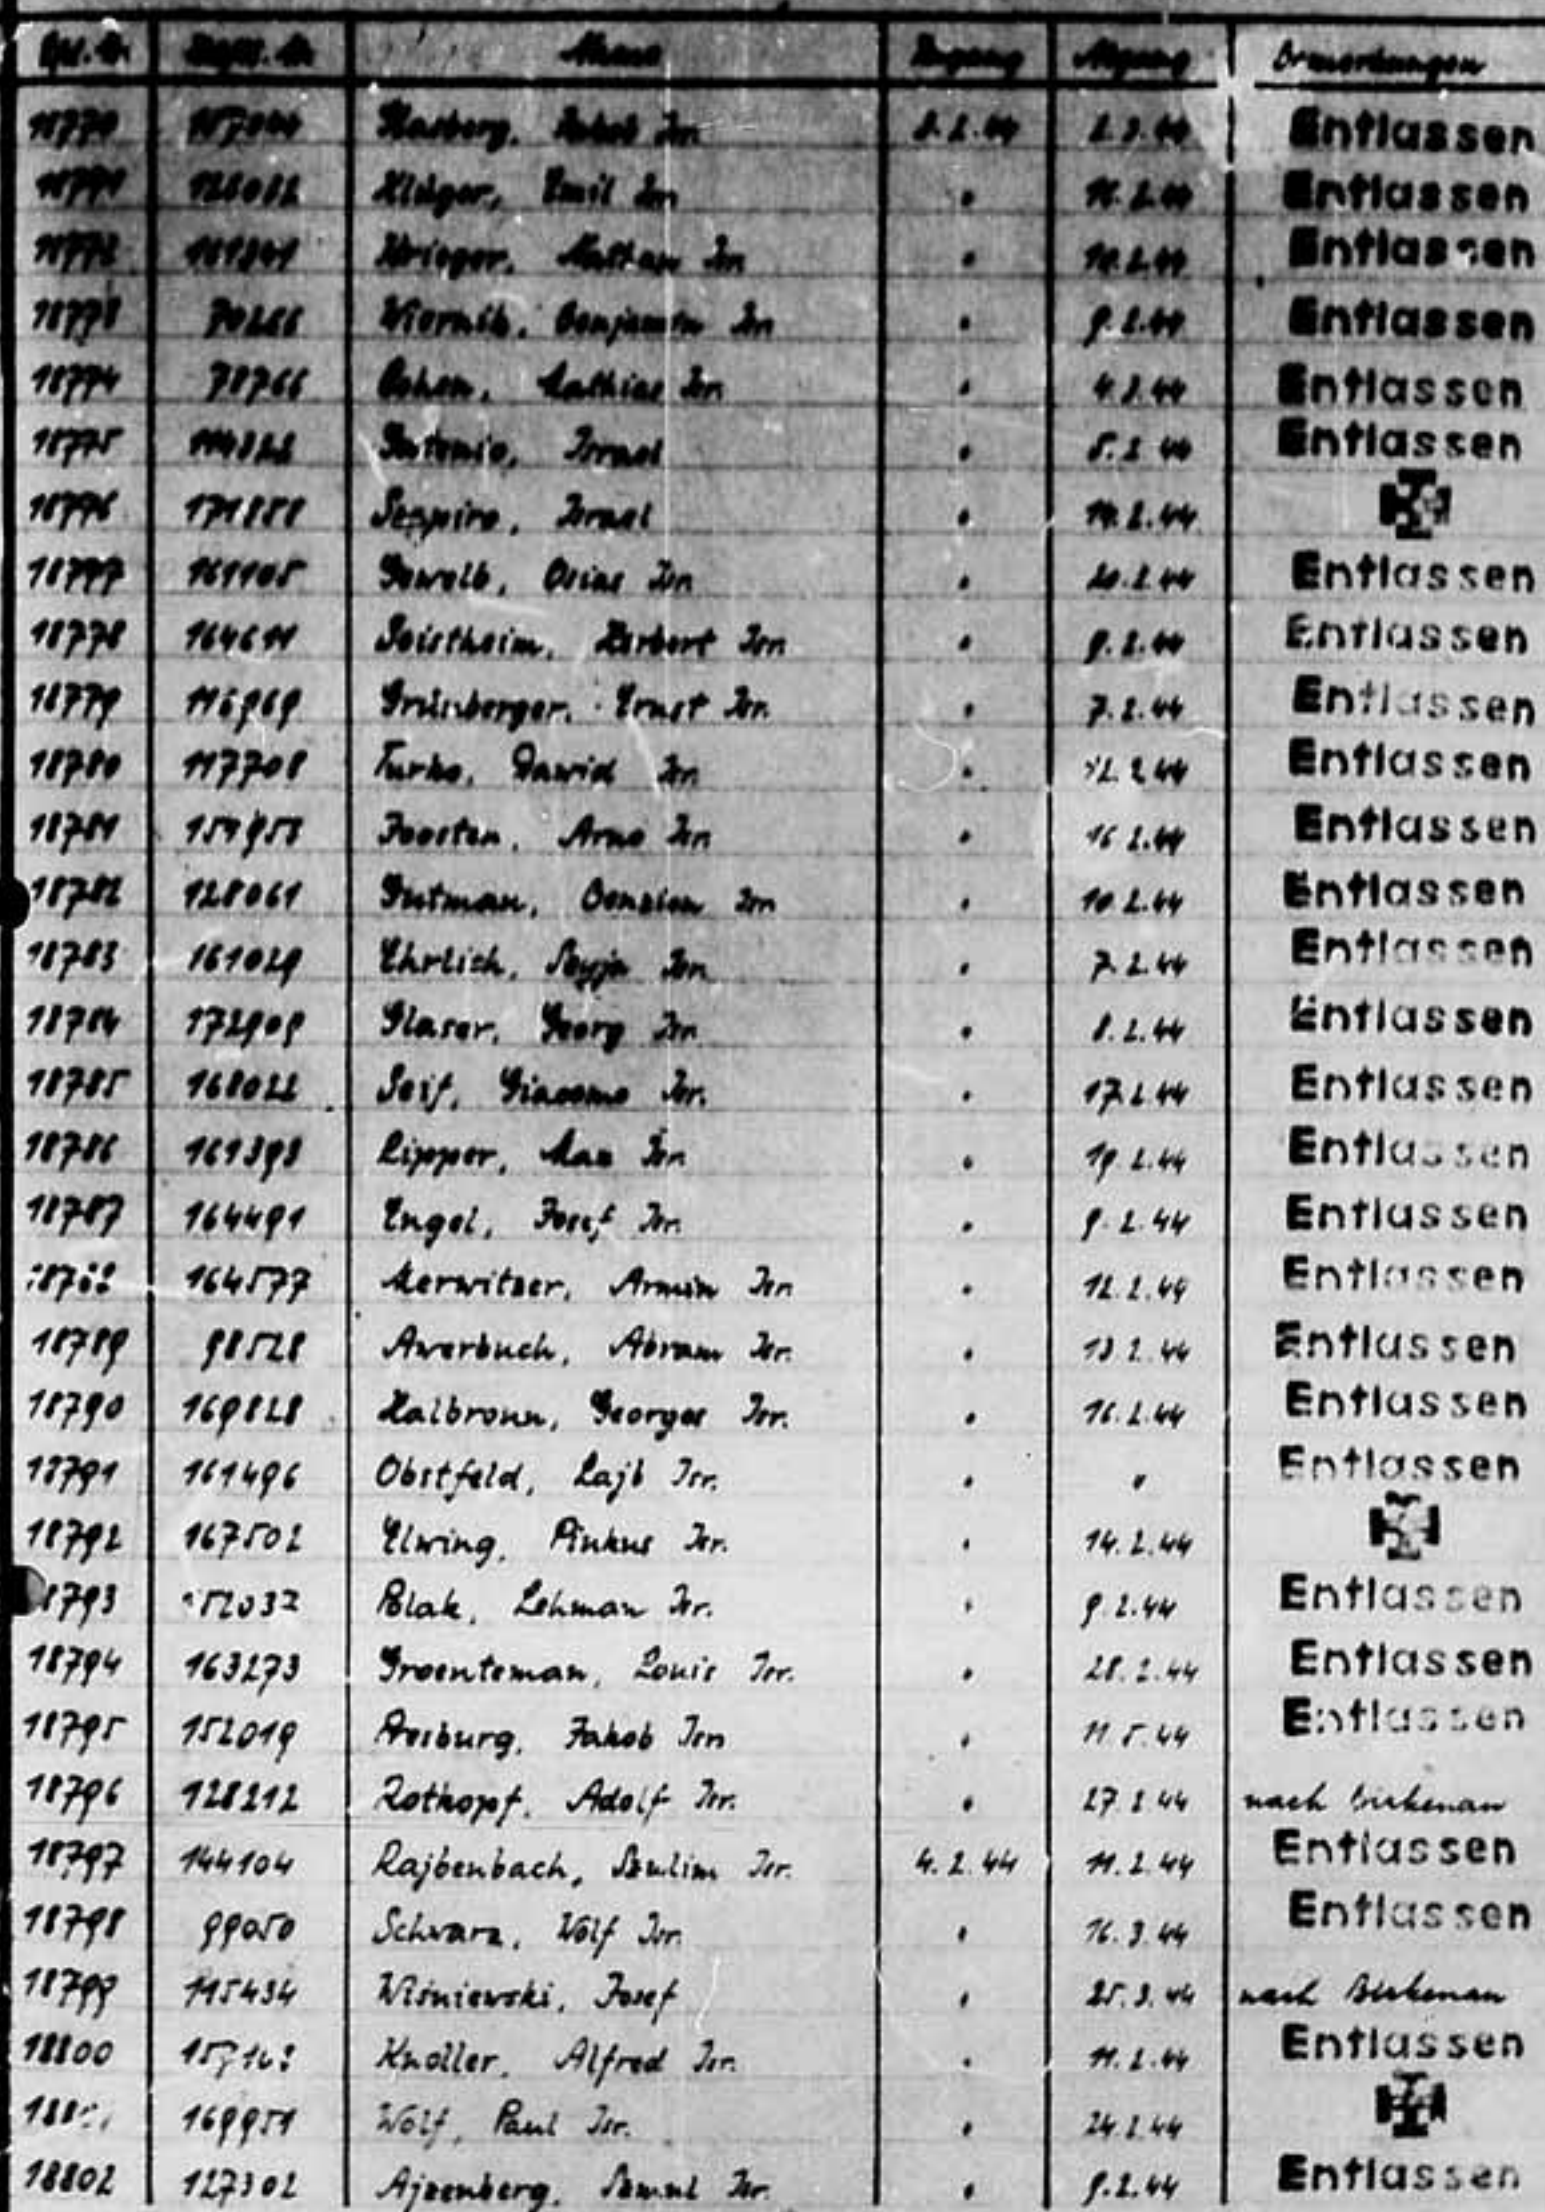 Name Zugang Abgang Bemerkungen
18770 Isr. 3.2.44 Entlassen
18771 Klüger, Emil Isr. " 16.2.44 Entlassen
18772 Krieger, Nathan Isr. " 10.2.44 Entlassen
18773 70266 Wiernik, Benjamin Isr. " 9.2.44 Entlassen
18774 78766 Cohen, Mathias Isr. " Entlassen
18775 Israel " 5.2.44 Entlassen
18776 171888 Szapiro, Israel " 14.2.44
18777 161105 Gewelb, Osias Isr. " 20.2.44 Entlassen
18778 164611 Herbert Isr. " 9.2.44 Entlassen
18779 116969 Grünberger, Ernst Isr. " 7.2.44 Entlassen
18780 117708 Turko, Dawid Isr. " 12.2.44 Entlassen
18781 Joosten, Arno Isr. " 16.2.44 Entlassen
18782 128061 Gutman, Benzion Isr. " 10.2.44 Entlassen
18783 161029 Ehrlich, Isr. " 7.2.44 Entlassen
18784 172909 Glaser, Georg Isr. " 8.2.44 Entlassen
18785 168022 Seif, Giacomo Isr. " 17.2.44 Entlassen
18786 161393 Lipper, Max Isr. " 19.2.44 Entlassen
18787 164491 Engel, Josef Isr. " 9.2.44 Entlassen
18788 164577 Merwitzer, Armin Isr. " 12.2.44 Entlassen
18789 98528 Awerbuch, Abram Isr. " 13.2.44 Entlassen
18790 169828 Halbronn, Georges Isr. " 16.2.44 Entlassen
18791 161496 Obstfeld, Lajb Isr. " " Entlassen
18792 167502 Elwing, Pinkus Isr. " 14.2.44
18793 152032 Blak, Lehman Isr. " 9.2.44 Entlassen
18794 163273 Groenteman, Louis Isr. " 28.2.44 Entlassen
18795 152019 Jakob Isr. " 11.5.44 Entlassen
18796 128212 Rotkopf, Adolf Isr. " 27.2.44 nach Birkenau
18797 144104 Rajbenbach, Szulim Isr. 4.2.44 11.2.44 Entlassen
18798 99050 Schwarz, Wolf Isr. " 16.3.44 Entlassen
18799 115434 Wiśniewski, Josef " 25.3.44 nach Birkenau
18800 Knoller, Alfred Isr. " 11.2.44 Entlassen
169951 Wolf, Paul Isr. " 24.2.44
18802 127302 Ajzenberg, Samul Isr. " 9.2.44 Entlassen